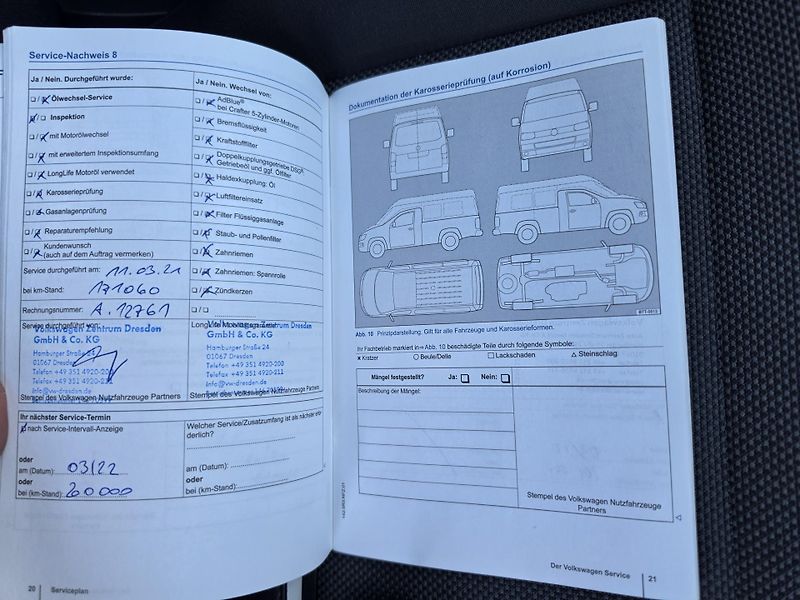 Service-Nachweis 8
Ja / Nein. Durchgeführt wurde:
Ölwechsel-Service
Inspektion
mit Motorölwechsel
mit erweitertem Inspektionsumfang
LongLife Motoröl verwendet
Karosserieprüfung
Gasanlagenprüfung
Reparaturempfehlung
Kundenwunsch
(auch auf dem Auftrag vermerken)
Service durchgeführt am: 11.03.21
bei km-Stand: 171060
Rechnungsnummer: A.12761
Service durchgeführt von:
Volkswagen Zentrum Dresden
GmbH & Co. KG
Hamburger Straße 24
01067 Dresden
Telefon +49 351 4920-200
Telefax +49 351 4920-211
info@vw-dresden.de
Stempel des Volkswagen Nutzfahrzeuge Partners
Ihr nächster Service-Termin
nach Service-Intervall-Anzeige
oder
am (Datum): 03/22
oder
bei (km-Stand):
Ja / Nein. Wechsel von:
AdBlue®
bei Crafter 5-Zylinder-Motoren
Bremsflüssigkeit
Kraftstofffilter
Doppelkupplungsgetriebe DSG®
Getriebeöl und ggf. Ölfilter
Haldexkupplung: Öl
Luftfiltereinsatz
Filter Flüssiggasanlage
Staub- und Pollenfilter
Zahnriemen
Zahnriemen: Spannrolle
Zündkerzen
Volkswagen Zentrum Dresden
GmbH & Co. KG
Hamburger Straße 24
01067 Dresden
Telefon +49 351 4920-200
Telefax +49 351 4920-211
info@vw-dresden.de
Stempel des Volkswagen Nutzfahrzeuge Partners
Welcher Service/Zusatzumfang ist als nächster
derlich?
am (Datum):
oder
bei (km-Stand):
20 Serviceplan
Dokumentation der Karosserieprüfung (auf Korrosion)
Abb. 10 Prinzipdarstellung. Gilt für alle Fahrzeuge und Karosserieformen.
Ihr Fachbetrieb markiert in ⇒ Abb. 10 beschädigte Teile durch folgende Symbole:
× Kratzer ○ Beule/Delle □ Lackschaden △ Steinschlag
Mängel festgestellt? Ja: □ Nein: □
Beschreibung der Mängel:
Stempel des Volkswagen Nutzfahrzeuge
Partners
Der Volkswagen Service 21